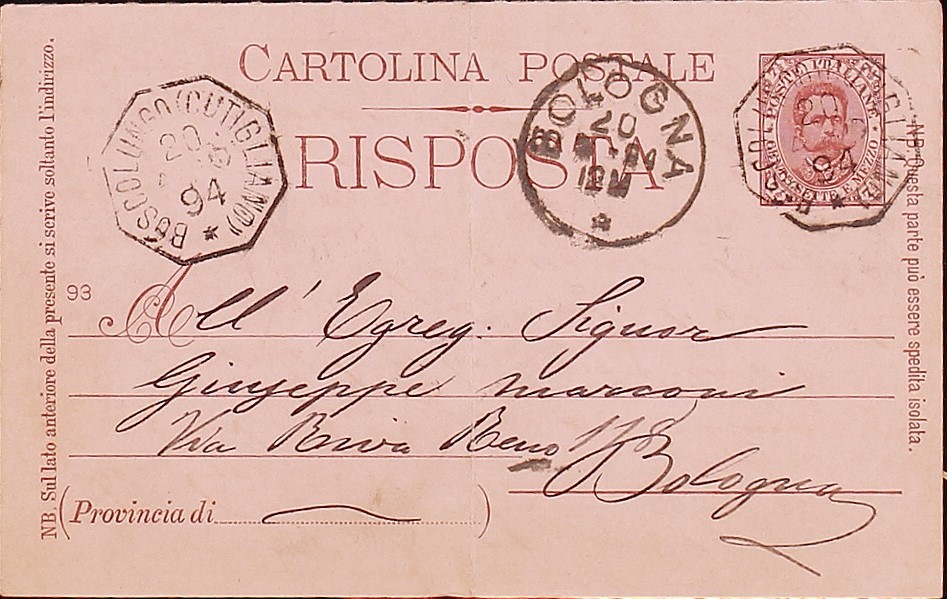 CARTOLINA POSTALE
RISPOSTA
BOSCOLUNGO (CUTIGLIANO)
20
94
*
BOLOGNA
20
94
12M
*
POSTE ITALIANE
CENT. SETTE E MEZZO
94
NB. Sul lato anteriore della presente si scrivo soltanto l'indirizzo.
NB. Questa parte può essere spedita isolata.
93
All' Egreg. Signor
Giuseppe Marconi
Via Riva Reno 118
Bologna
(Provincia di )